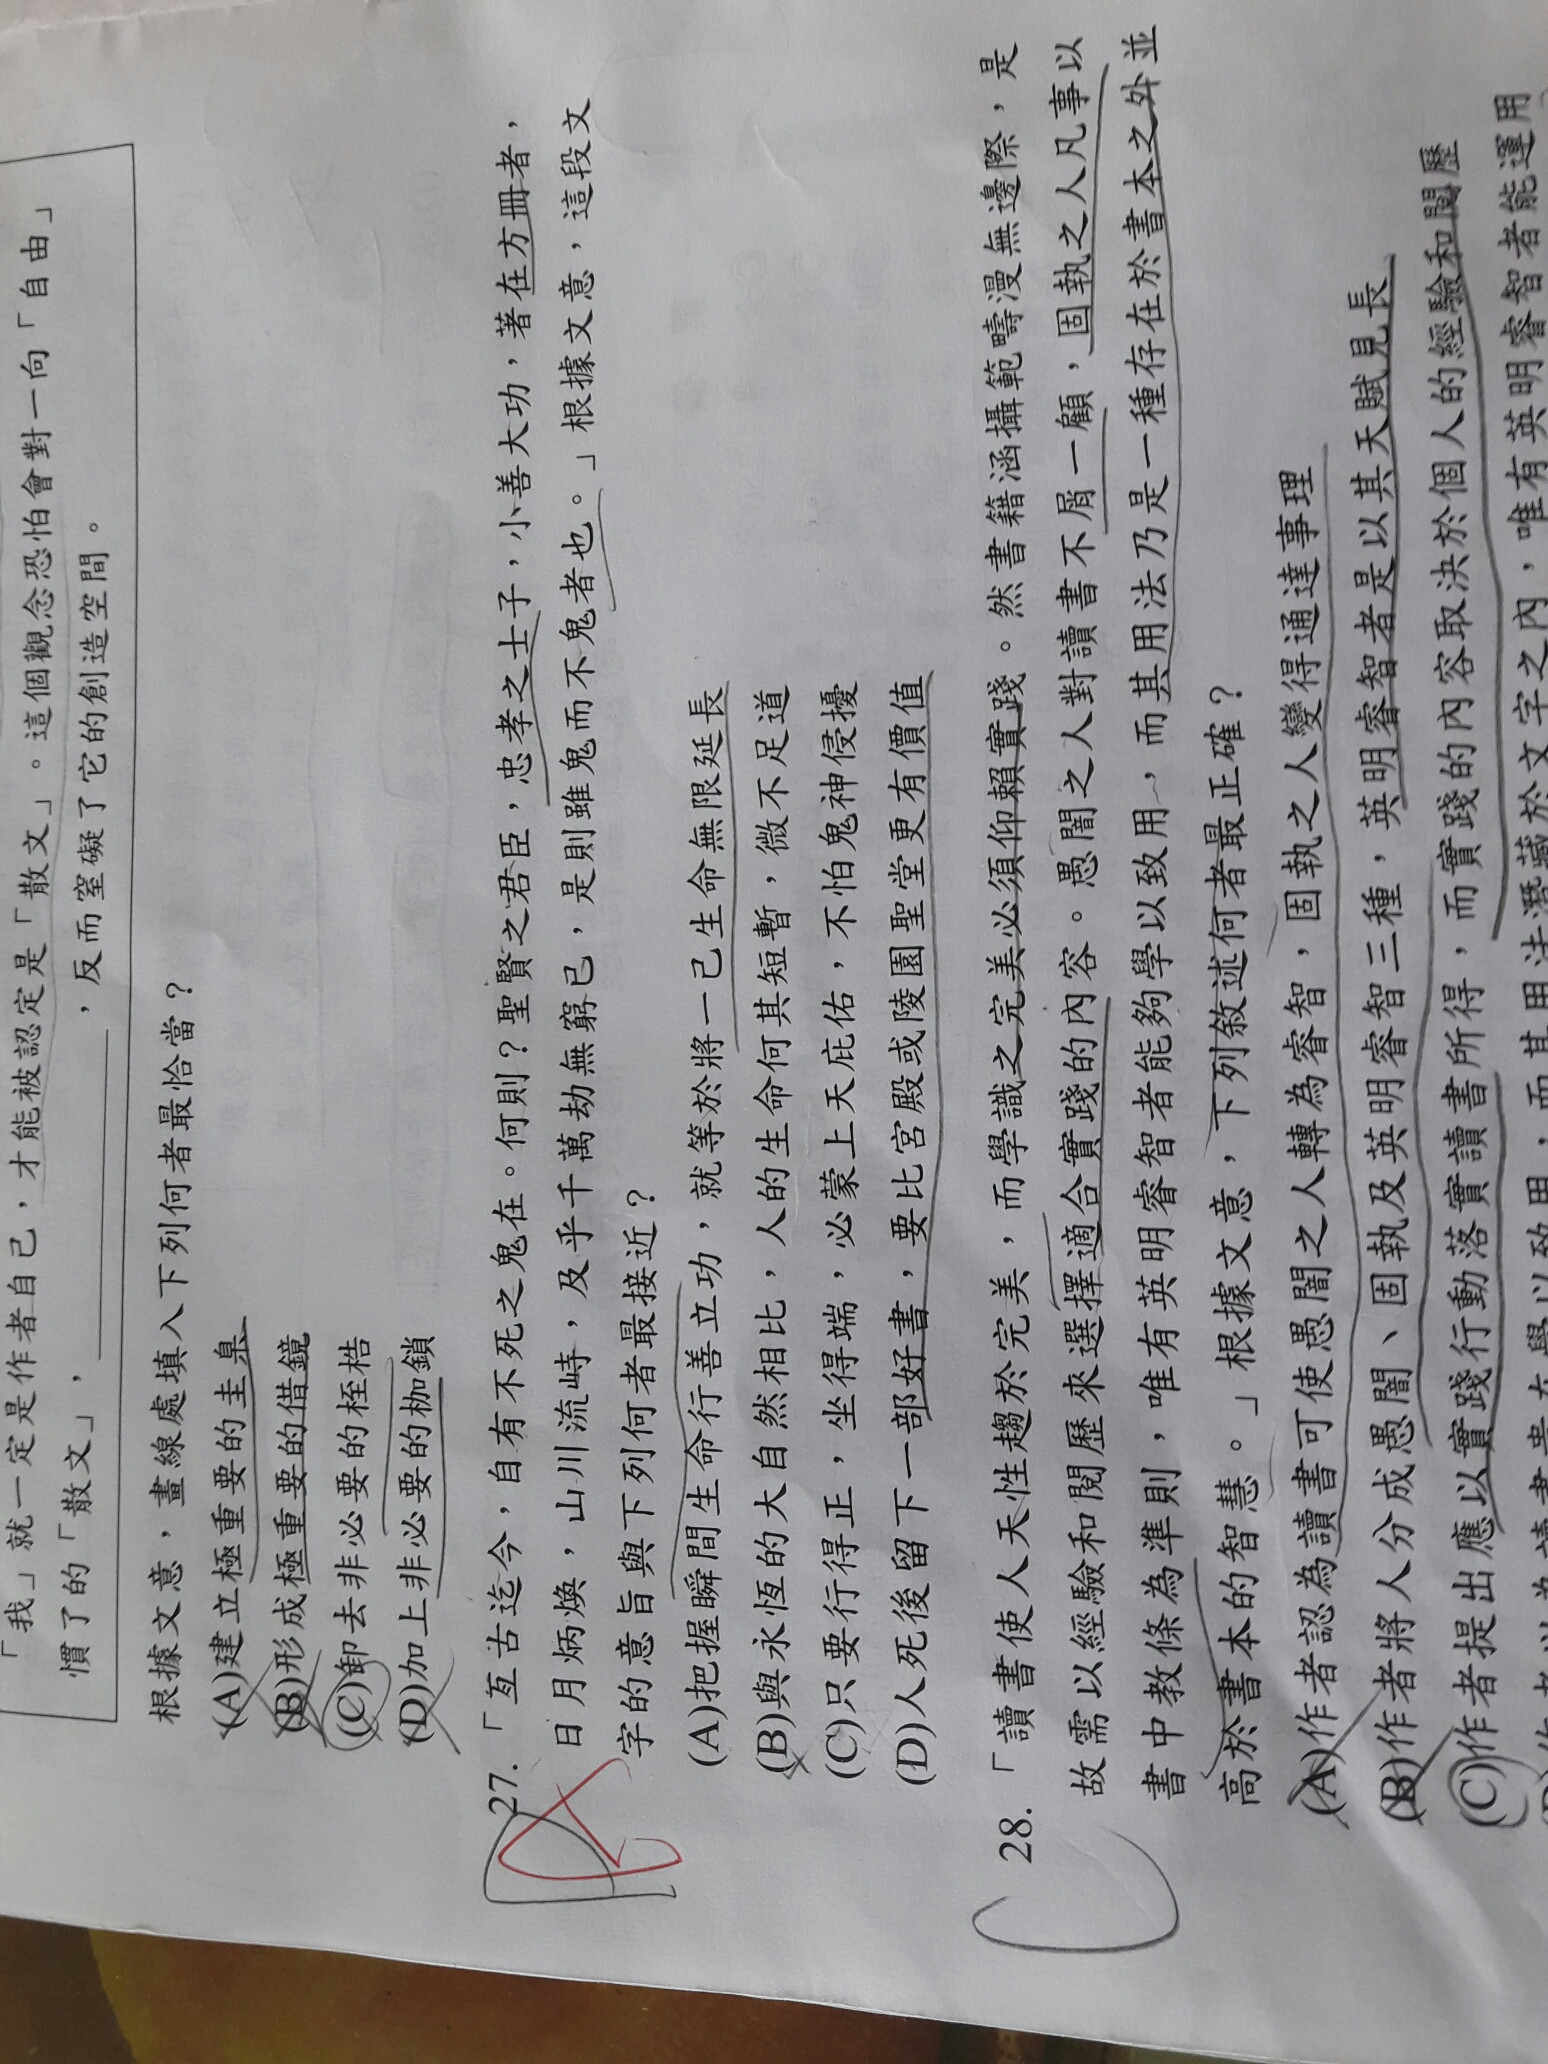 「我」就一定是作者自己，才能被認定是「散文」。這個觀念恐怕會對一向「自由」
慣了的「散文」，＿＿＿＿＿＿＿＿，反而窒礙了它的創造空間。
根據文意，畫線處填入下列何者最恰當？
(A)建立極重要的圭臬
(B)形成極重要的借鏡
(C)卸去非必要的桎梏
(D)加上非必要的枷鎖
27.「亙古迄今，自有不死之鬼在。何則？聖賢之君臣，忠孝之士子，小善大功，著在方冊者，
日月炳煥，山川流峙，及乎千萬劫無窮已，是則雖鬼而不鬼者也。」根據文意，這段文
字的意旨與下列何者最接近？
(A)把握瞬間生命行善立功，就等於將一己生命無限延長
(B)與永恆的大自然相比，人的生命何其短暫，微不足道
(C)只要行得正，坐得端，必蒙上天庇佑，不怕鬼神侵擾
(D)人死後留下一部好書，要比宮殿或陵園聖堂更有價值
28.「讀書使人天性趨於完美，而學識之完美必須仰賴實踐。然書籍涵攝範疇漫無邊際，是
故需以經驗和閱歷來選擇適合實踐的內容。愚闇之人對讀書不屑一顧，固執之人凡事以
書中教條為準則，唯有英明睿智者能夠學以致用，而其用法乃是一種存在於書本之外並
高於書本的智慧。」根據文意，下列敘述何者最正確？
(A)作者認為讀書可使愚闇之人轉為睿智，固執之人變得通達事理
(B)作者將人分成愚闇、固執及英明睿智三種，英明睿智者是以其天賦見長
(C)作者提出應以實踐行動落實讀書所得，而實踐的內容取決於個人的經驗和閱歷
，而其用法潛藏於文字之內，唯有英明睿智者能運用
A
C